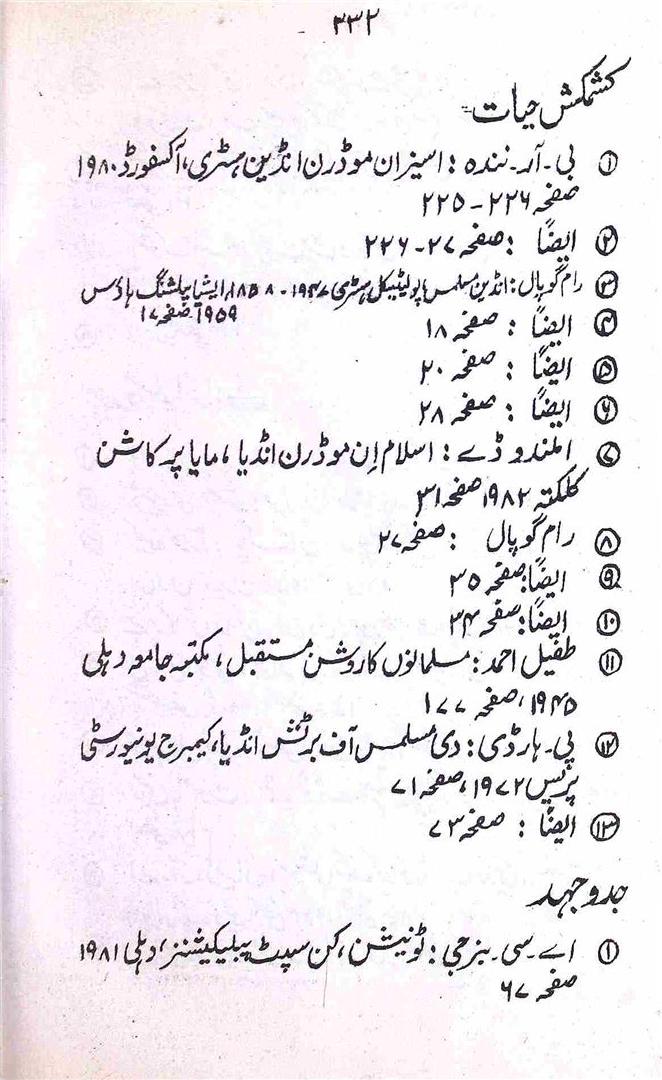 ۳۳۲
کشمکش حیات
① بی۔ آر۔ نندہ : اسیز ان موڈرن انڈین ہسٹری، آکسفورڈ ۱۹۸۰
صفحہ ۲۲۶ - ۲۲۵
② ایضاً : صفحہ ۲۷ - ۲۲۶
③ رام گوپال : انڈین مسلمس پولیٹیکل ہسٹری ۱۹۴۷ - ۱۸۵۸، ایشیا پبلشنگ ہاؤس
۱۹۵۹، صفحہ ۱۷
④ ایضاً : صفحہ ۱۸
⑤ ایضاً : صفحہ ۲۰
⑥ ایضاً : صفحہ ۲۸
⑦ المندو ڈے : اسلام اِن موڈرن انڈیا، مایا پرکاشن
کلکتہ ۱۹۸۲ صفحہ ۳۱
⑧ رام گوپال : صفحہ ۲۷
⑨ ایضاً : صفحہ ۳۵
⑩ ایضاً : صفحہ ۳۴
⑪ طفیل احمد : مسلمانوں کا روشن مستقبل، مکتبہ جامعہ دہلی
۱۹۴۵، صفحہ ۱۷۷
⑫ پی۔ ہارڈی : دی مسلمس آف برٹش انڈیا، کیمبرج یونیورسٹی
پریس ۱۹۷۲، صفحہ ۷۱
⑬ ایضاً : صفحہ ۷۳
جدوجہد
① اے۔ سی۔ بنرجی : ٹو نیشن، کن سیپٹ پبلیکیشنز، دہلی ۱۹۸۱
صفحہ ۶۷